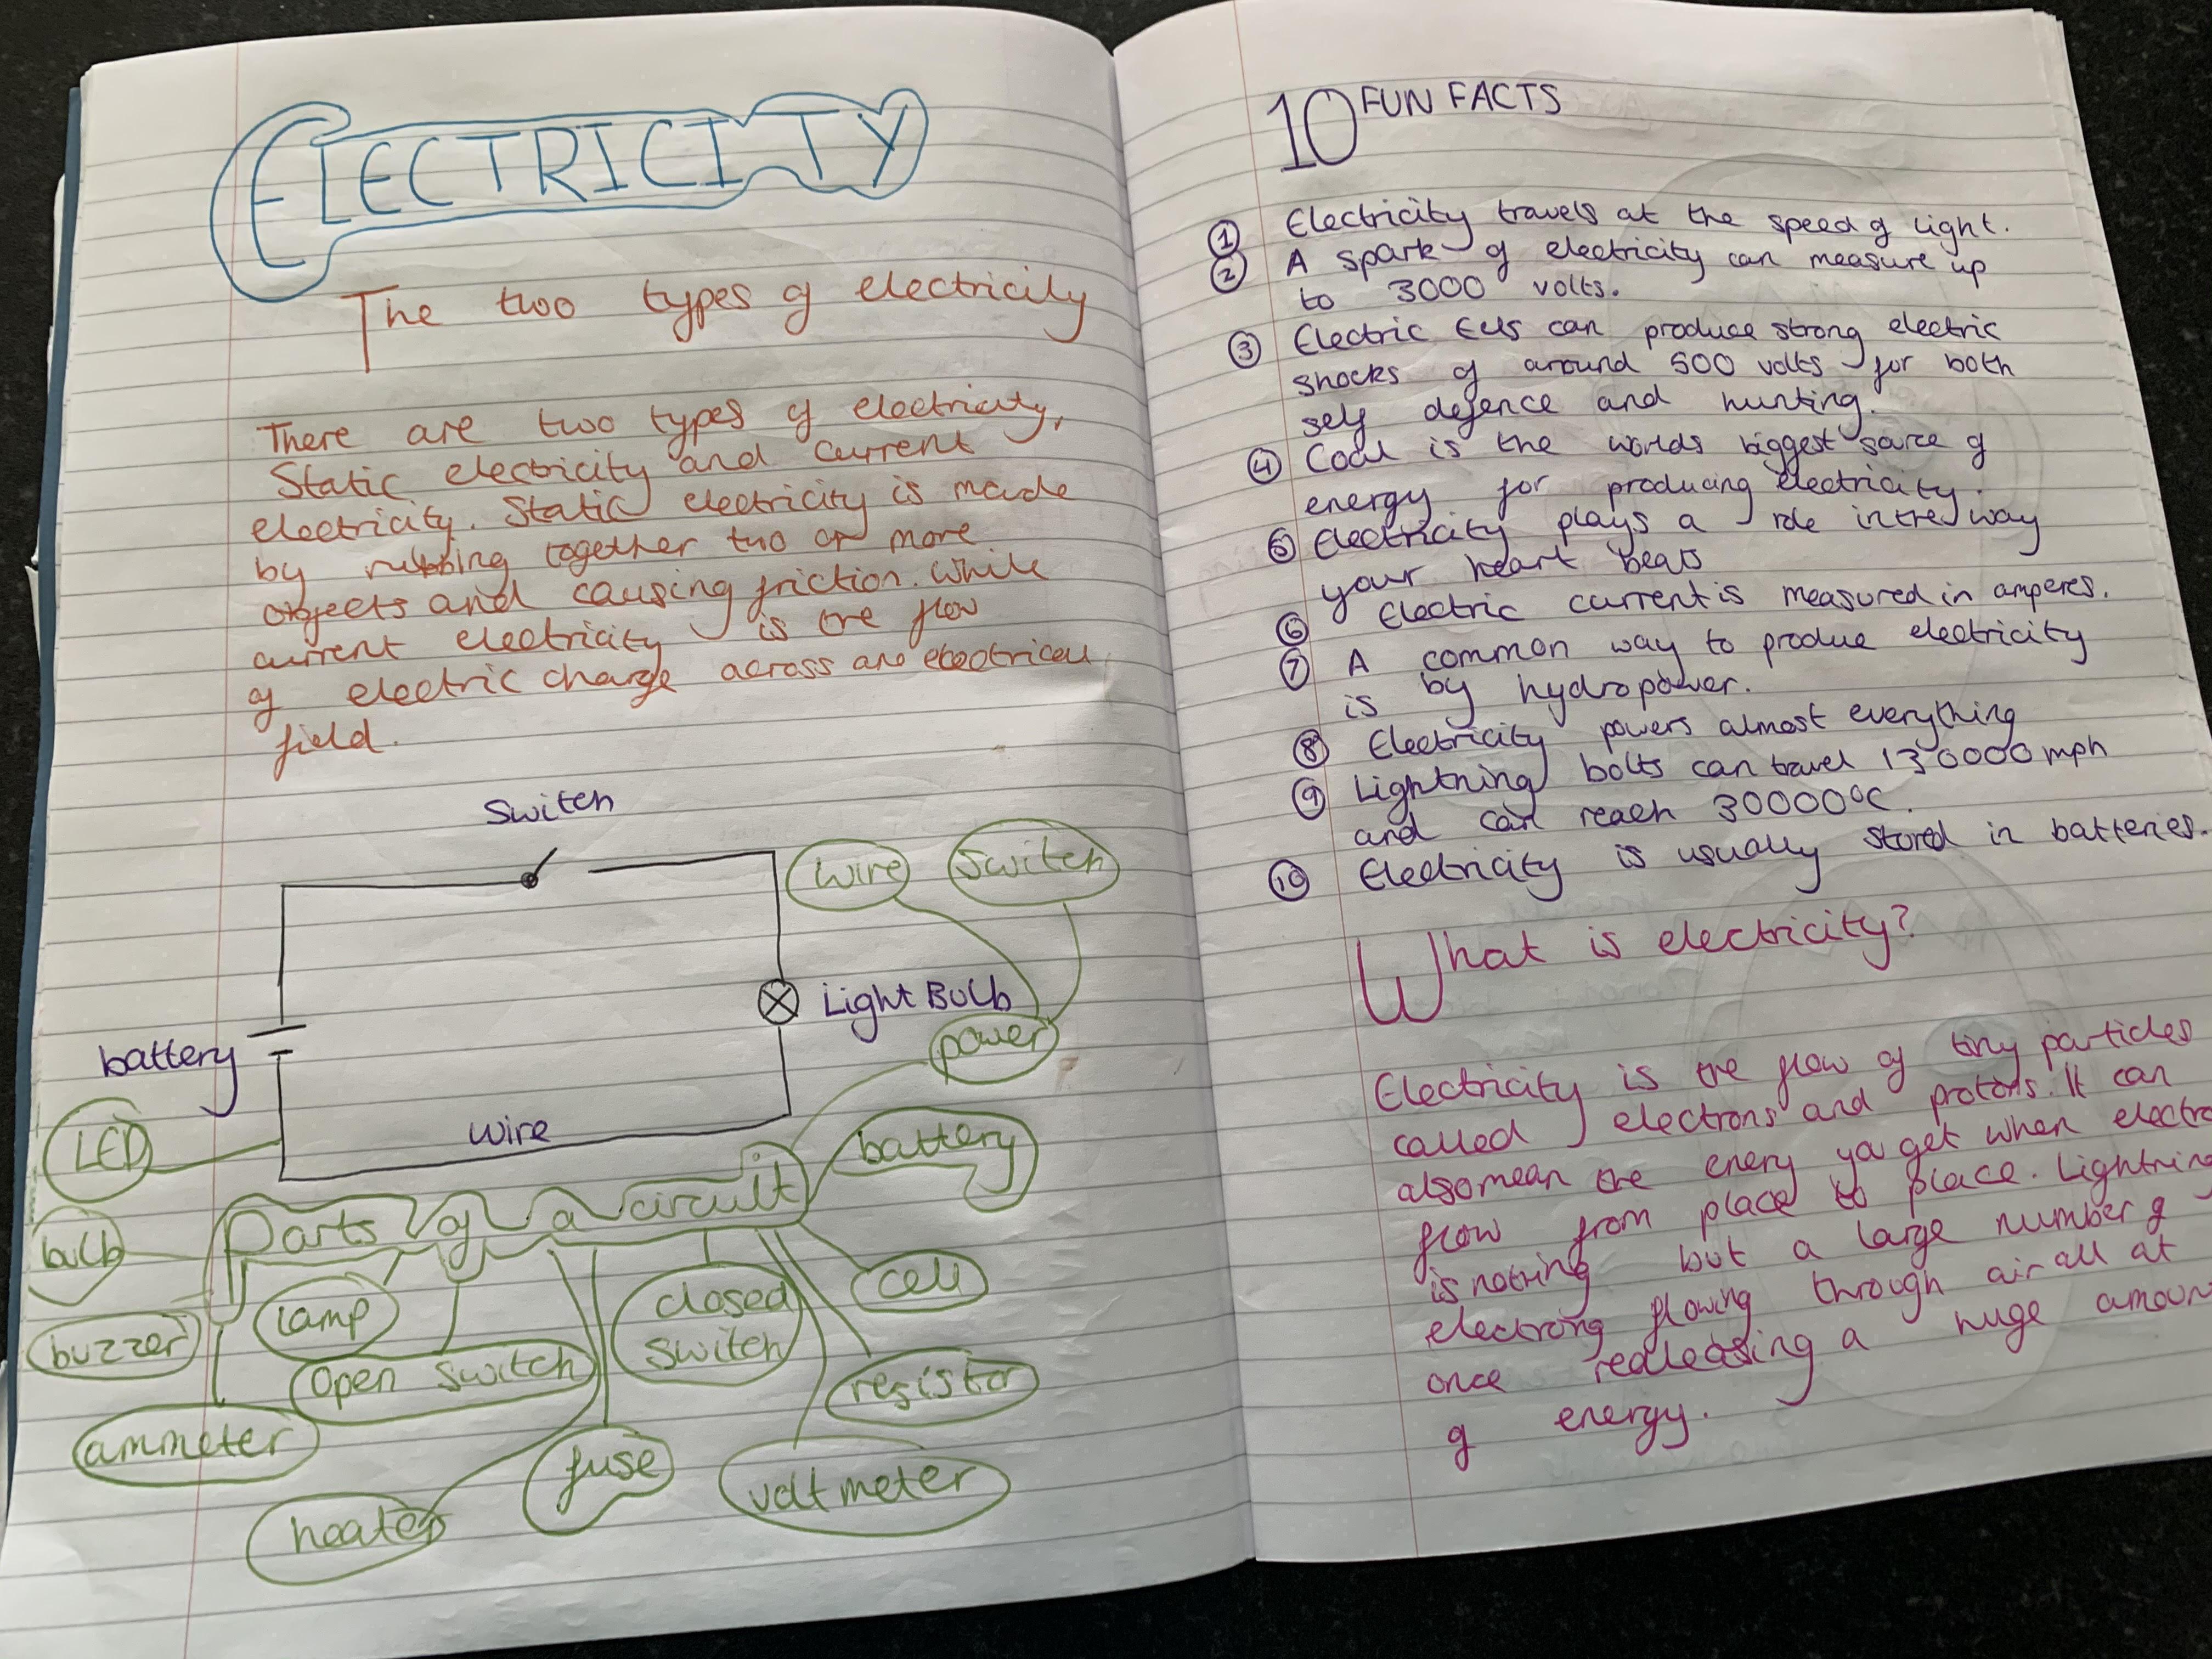 ELECTRICITY
The two types of electricity
There are two types of electricity,
Static electricity and current
electricity. Static electricity is made
by rubbing together two or more
objects and causing friction. While
current electricity is the flow
of electric charge across an electrical
field.
Switch
battery
Light Bulb
wire
wire
switch
power
battery
LED
Parts of a circuit
bulb
buzzer
lamp
open switch
closed
switch
cell
resistor
ammeter
heater
fuse
voltmeter
10 FUN FACTS
① Electricity travels at the speed of light.
② A spark of electricity can measure up
to 3000 volts.
③ Electric Eels can produce strong electric
shocks of around 500 volts for both
self defence and hunting.
④ Coal is the worlds biggest source of
energy for producing electricity.
⑤ Electricity plays a role in the way
your heart beats
⑥ Electric current is measured in amperes.
⑦ A common way to produe electricity
is by hydropower.
⑧ Electricity powers almost everything
⑨ Lightning bolts can travel 130000 mph
and can reach 30000°C.
⑩ Electricity is usually stored in batteries.
What is electricity?
Electricity is the flow of tiny particles
called electrons and protons. It can
also mean the enery you get when electro
flow from place to place. Lightning
is nothing but a large number of
electrons flowing through air all at
once realeasing a huge amoun
of energy.